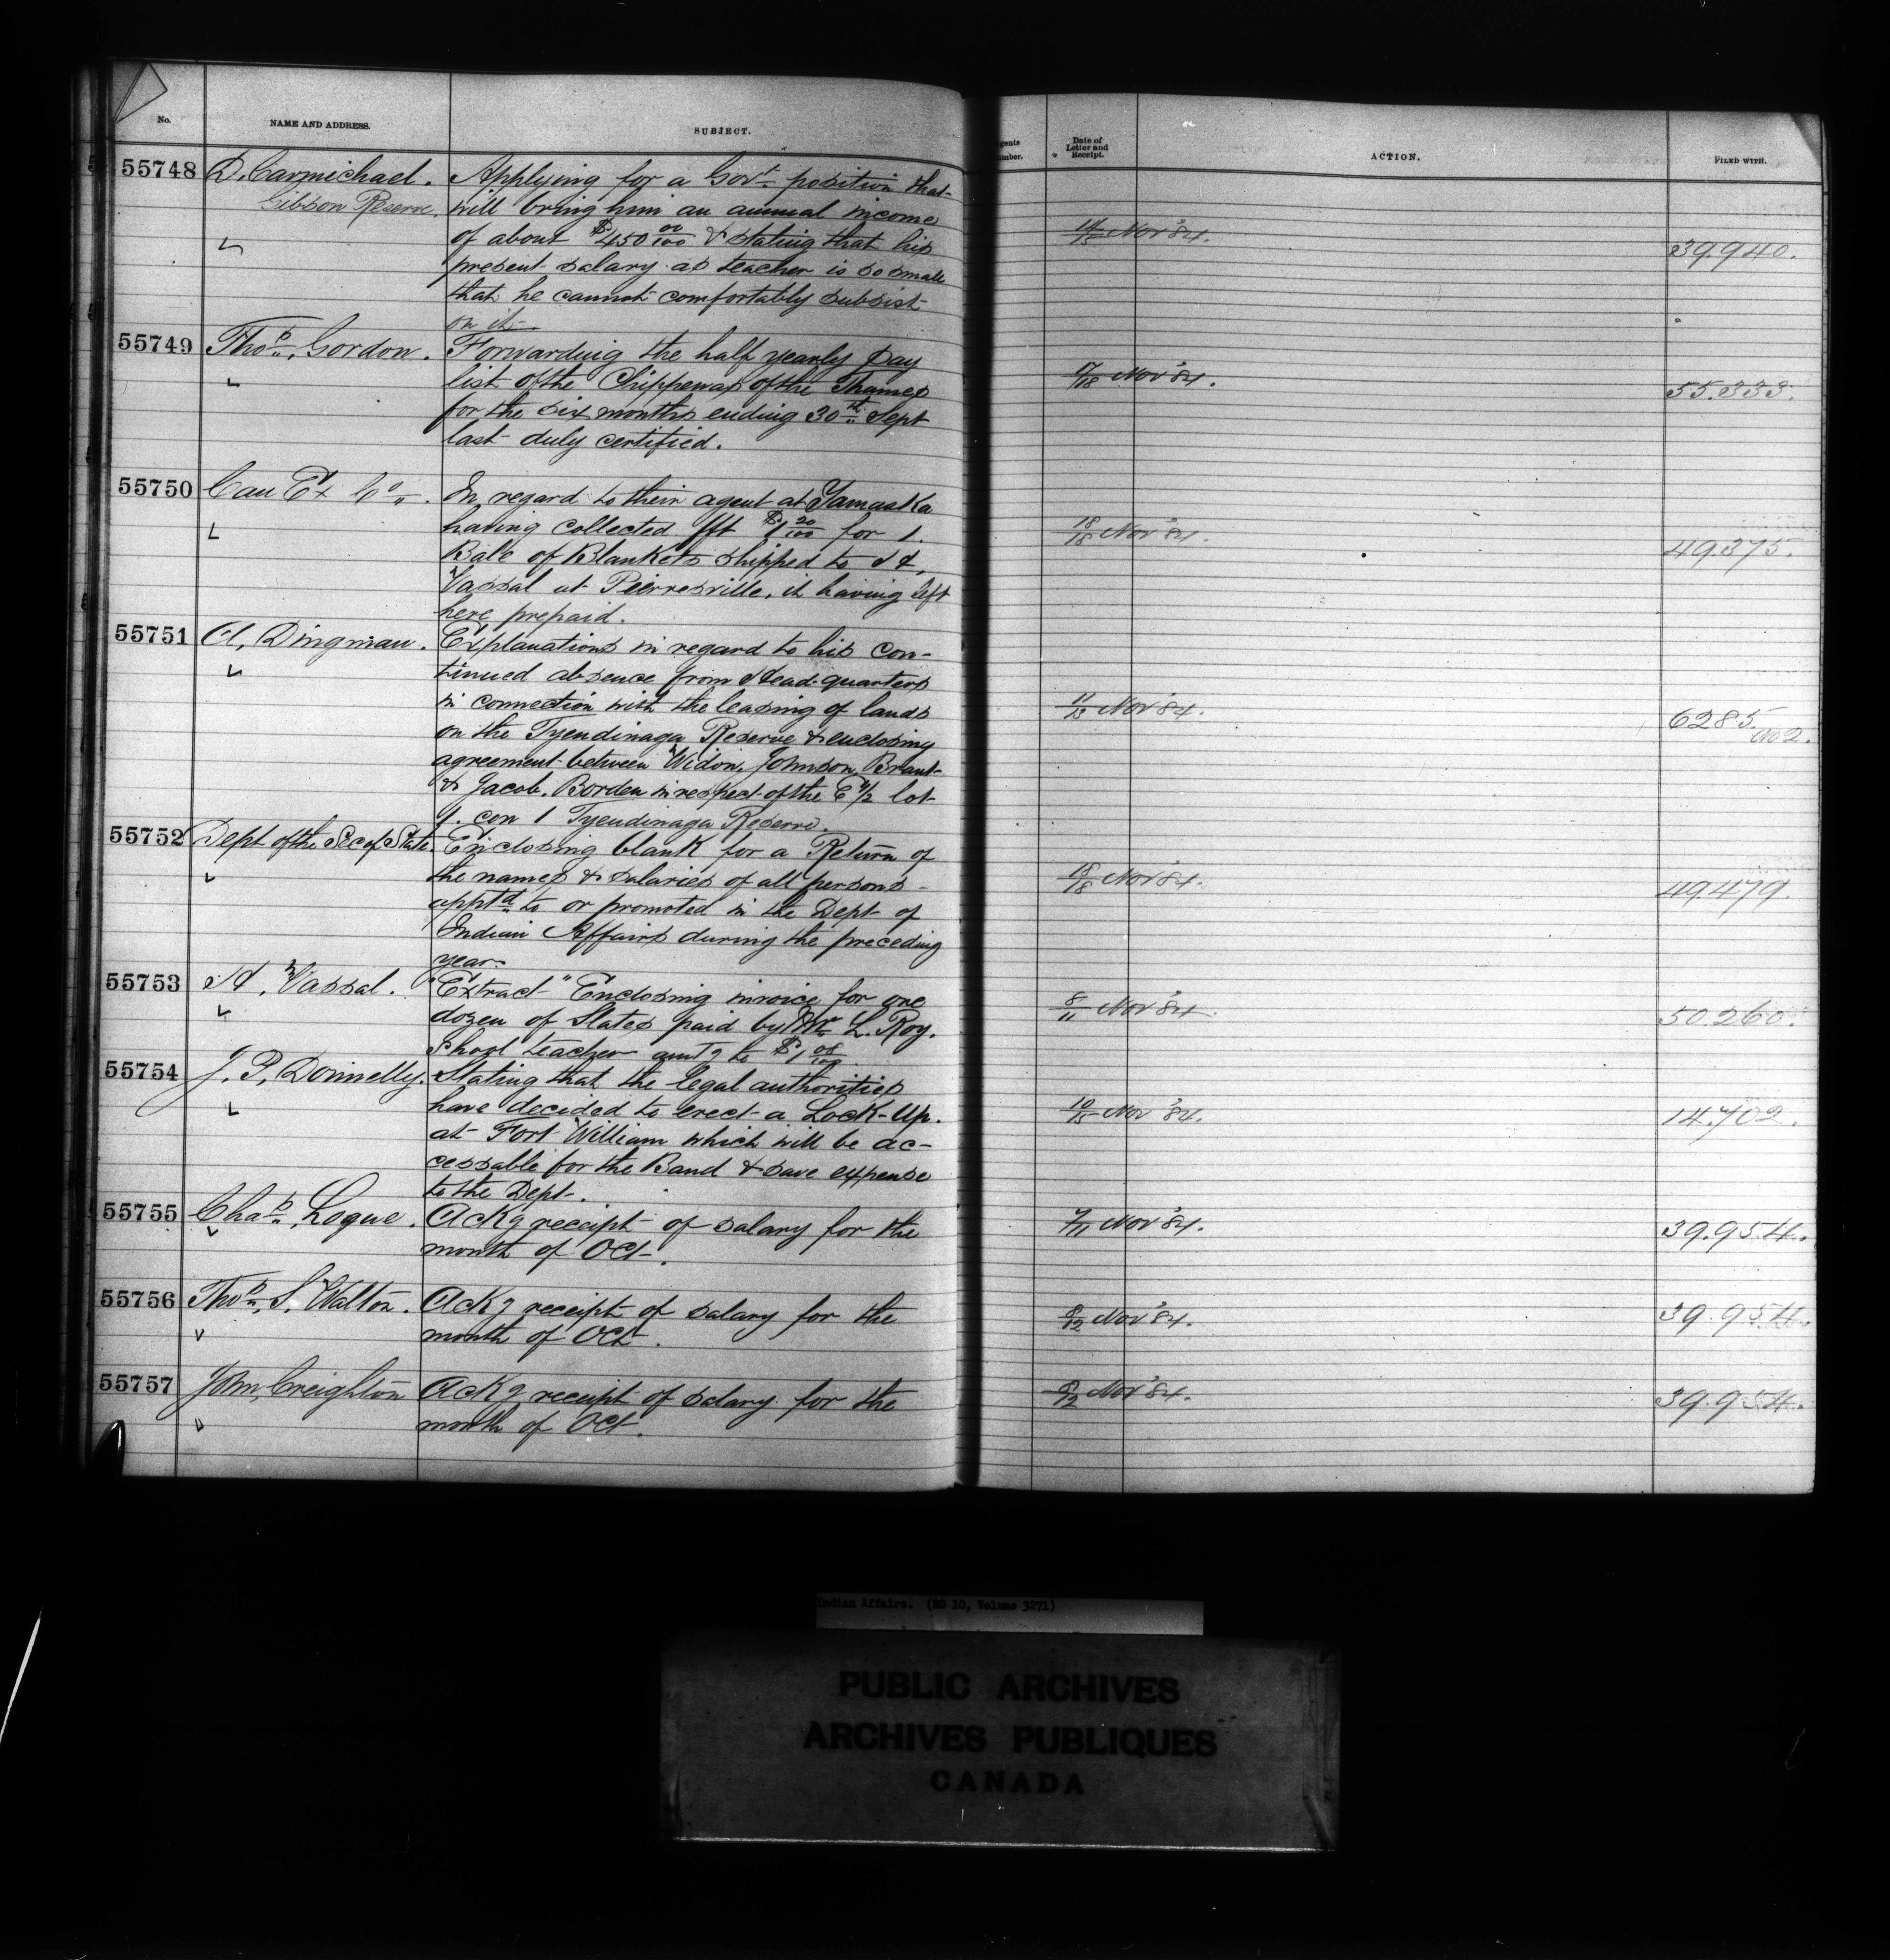 No. NAME AND ADDRESS. SUBJECT. Date of Letter and Receipt. ACTION. FILED WITH.
55748 D. Carmichael. Applying for a Govt. position that
Gibson Reserve. will bring him an annual income
of about $450 00/100 & stating that his 14/15 Nov '84. 39.940.
present salary as teacher is so small
that he cannot comfortably subsist
on it
55749 Thos. Gordon. Forwarding the half yearly Pay
list of the Chippewas of the Thames 17/18 Nov '84. 55.333.
for the six months ending 30th Sept
last duly certified.
55750 Can Ex Co. In regard to their agent at Yamaska
having collected fft $1 20/100 for 1. 18/18 Nov '84. 49375.
Bale of Blankets shipped to H.
Vassal at Pierresville, it having left
here prepaid.
55751 A. Dingman. Explanations in regard to his con-
tinued absence from Head-quarters
in connection with the leasing of lands 11/13 Nov '84. 6285 No 2.
on the Tyendinaga Reserve & enclosing
agreement between Widow, Johnson Brant
& Jacob. Borden in respect of the E 1/2 lot
9. con 1 Tyendinaga Reserve.
55752 Dept of the Sec of State. Enclosing blank for a Return of
the names & salaries of all persons 18/18 Nov '84. 49.479.
apptd to or promoted in the Dept of
Indian Affairs during the preceding
year.
55753 H. Vassal. "Extract" Enclosing invoice for one
dozen of Slates paid by Mr L. Roy. 8/11 Nov '84. 50.260.
School teacher amtg to $1 08/100
55754 J. P. Donnelly. Stating that the legal authorities
have decided to erect a Lock-Up. 10/15 Nov '84. 14.702.
at Fort William which will be ac-
cessable for the Band & save expense
to the Dept.
55755 Chas. Logue. Ackg receipt of salary for the 7/11 Nov '84. 39.954.
month of Oct.
55756 Thos. S. Walton. Ackg receipt of salary for the 8/12 Nov '84. 39.954.
month of Oct.
55757 John Creighton Ackg receipt of salary for the Nov '84. 39.954.
month of Oct.
Indian Affairs. (RG 10, Volume 3271)
PUBLIC ARCHIVES
ARCHIVES PUBLIQUES
CANADA